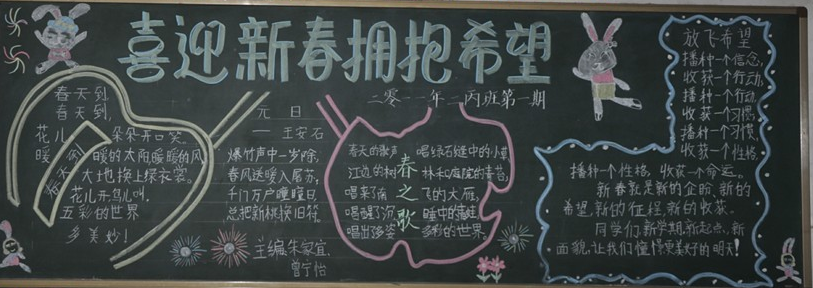 喜迎新春拥抱希望
二零一一年二丙班第一期
春天到,
春天到,
花儿朵朵开口笑。
暖暖的太阳暖暖的风
大地换上绿衣裳。
花儿开鸟儿叫,
五彩的世界
多美妙!
元日
——王安石
爆竹声中一岁除,
春风送暖入屠苏,
千门万户曈曈日,
总把新桃换旧符。
主编:朱家宜
曾宁怡
春之歌
春天的歌声,
江边的树
唱来了南
唱醒了沉
唱出多姿
唱绿石缝中的小草
林和庭院的青苔,
飞的大雁,
睡中的青蛙
多彩的世界
放飞希望
播种一个信念,
收获一个行动,
播种一个行动
收获一个习惯,
播种一个习惯,
收获一个性格,
播种一个性格,收获一个命运。
新春就是新的企盼,新的
希望,新的征程,新的收获。
同学们,新学期,新起点,新
面貌,让我们憧憬更美好的明天!